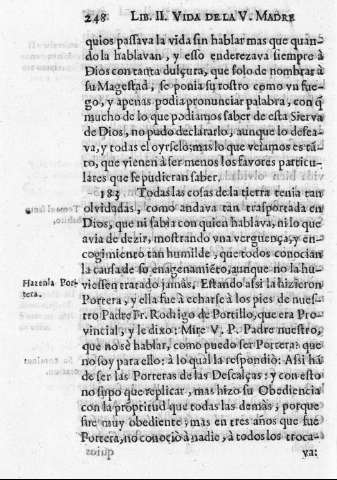 248 LIB. II. VIDA DE LA V. MADRE
quios passava la vida sin hablar mas que quan-
do la hablavan, y esso enderezava siempre à
Dios con tanta dulçura, que solo de nombrar à
su Magestad, se ponia su rostro como vn fue-
go, y apenas podia pronunciar palabra, con q̃
mucho de lo que podiamos saber de esta Sierva
de Dios, no pudo declararlo, aunque lo desea-
va, y todas el oyrselo; mas lo que veiamos es tã-
to, que vienen à ser menos los favores particu-
lares que se pudieran saber.
183 Todas las cosas de la tierra tenia tan
olvidadas, como andava tan trasportada en
Dios, que ni sabia con quien hablava, ni lo que
avia de dezir, mostrando vna verguença, y en-
cogimiento tan humilde, que todos conocian
la causa de su enagenamiẽto, aunque no la hu-
viessen tratado jamàs. Estando assi la hizieron
Hazenla Por-
tera.
Portera, y ella fue à echarse à los pies de nues-
tro Padre Fr. Rodrigo de Portillo, que era Pro-
vincial, y le dixo: Mire V. P. Padre nuestro,
que no sè hablar, como puedo ser Portera? que
no soy para ello: à lo qual la respondiò: Assi hã
de ser las Porteras de las Descalças: y con esto
no supo que replicar, mas hizo su Obediencia
con la prõptitud que todas las demàs; porque
fue muy obediente; mas en tres años que fue
Portera, no conociò à nadie, à todos los troca-
va: